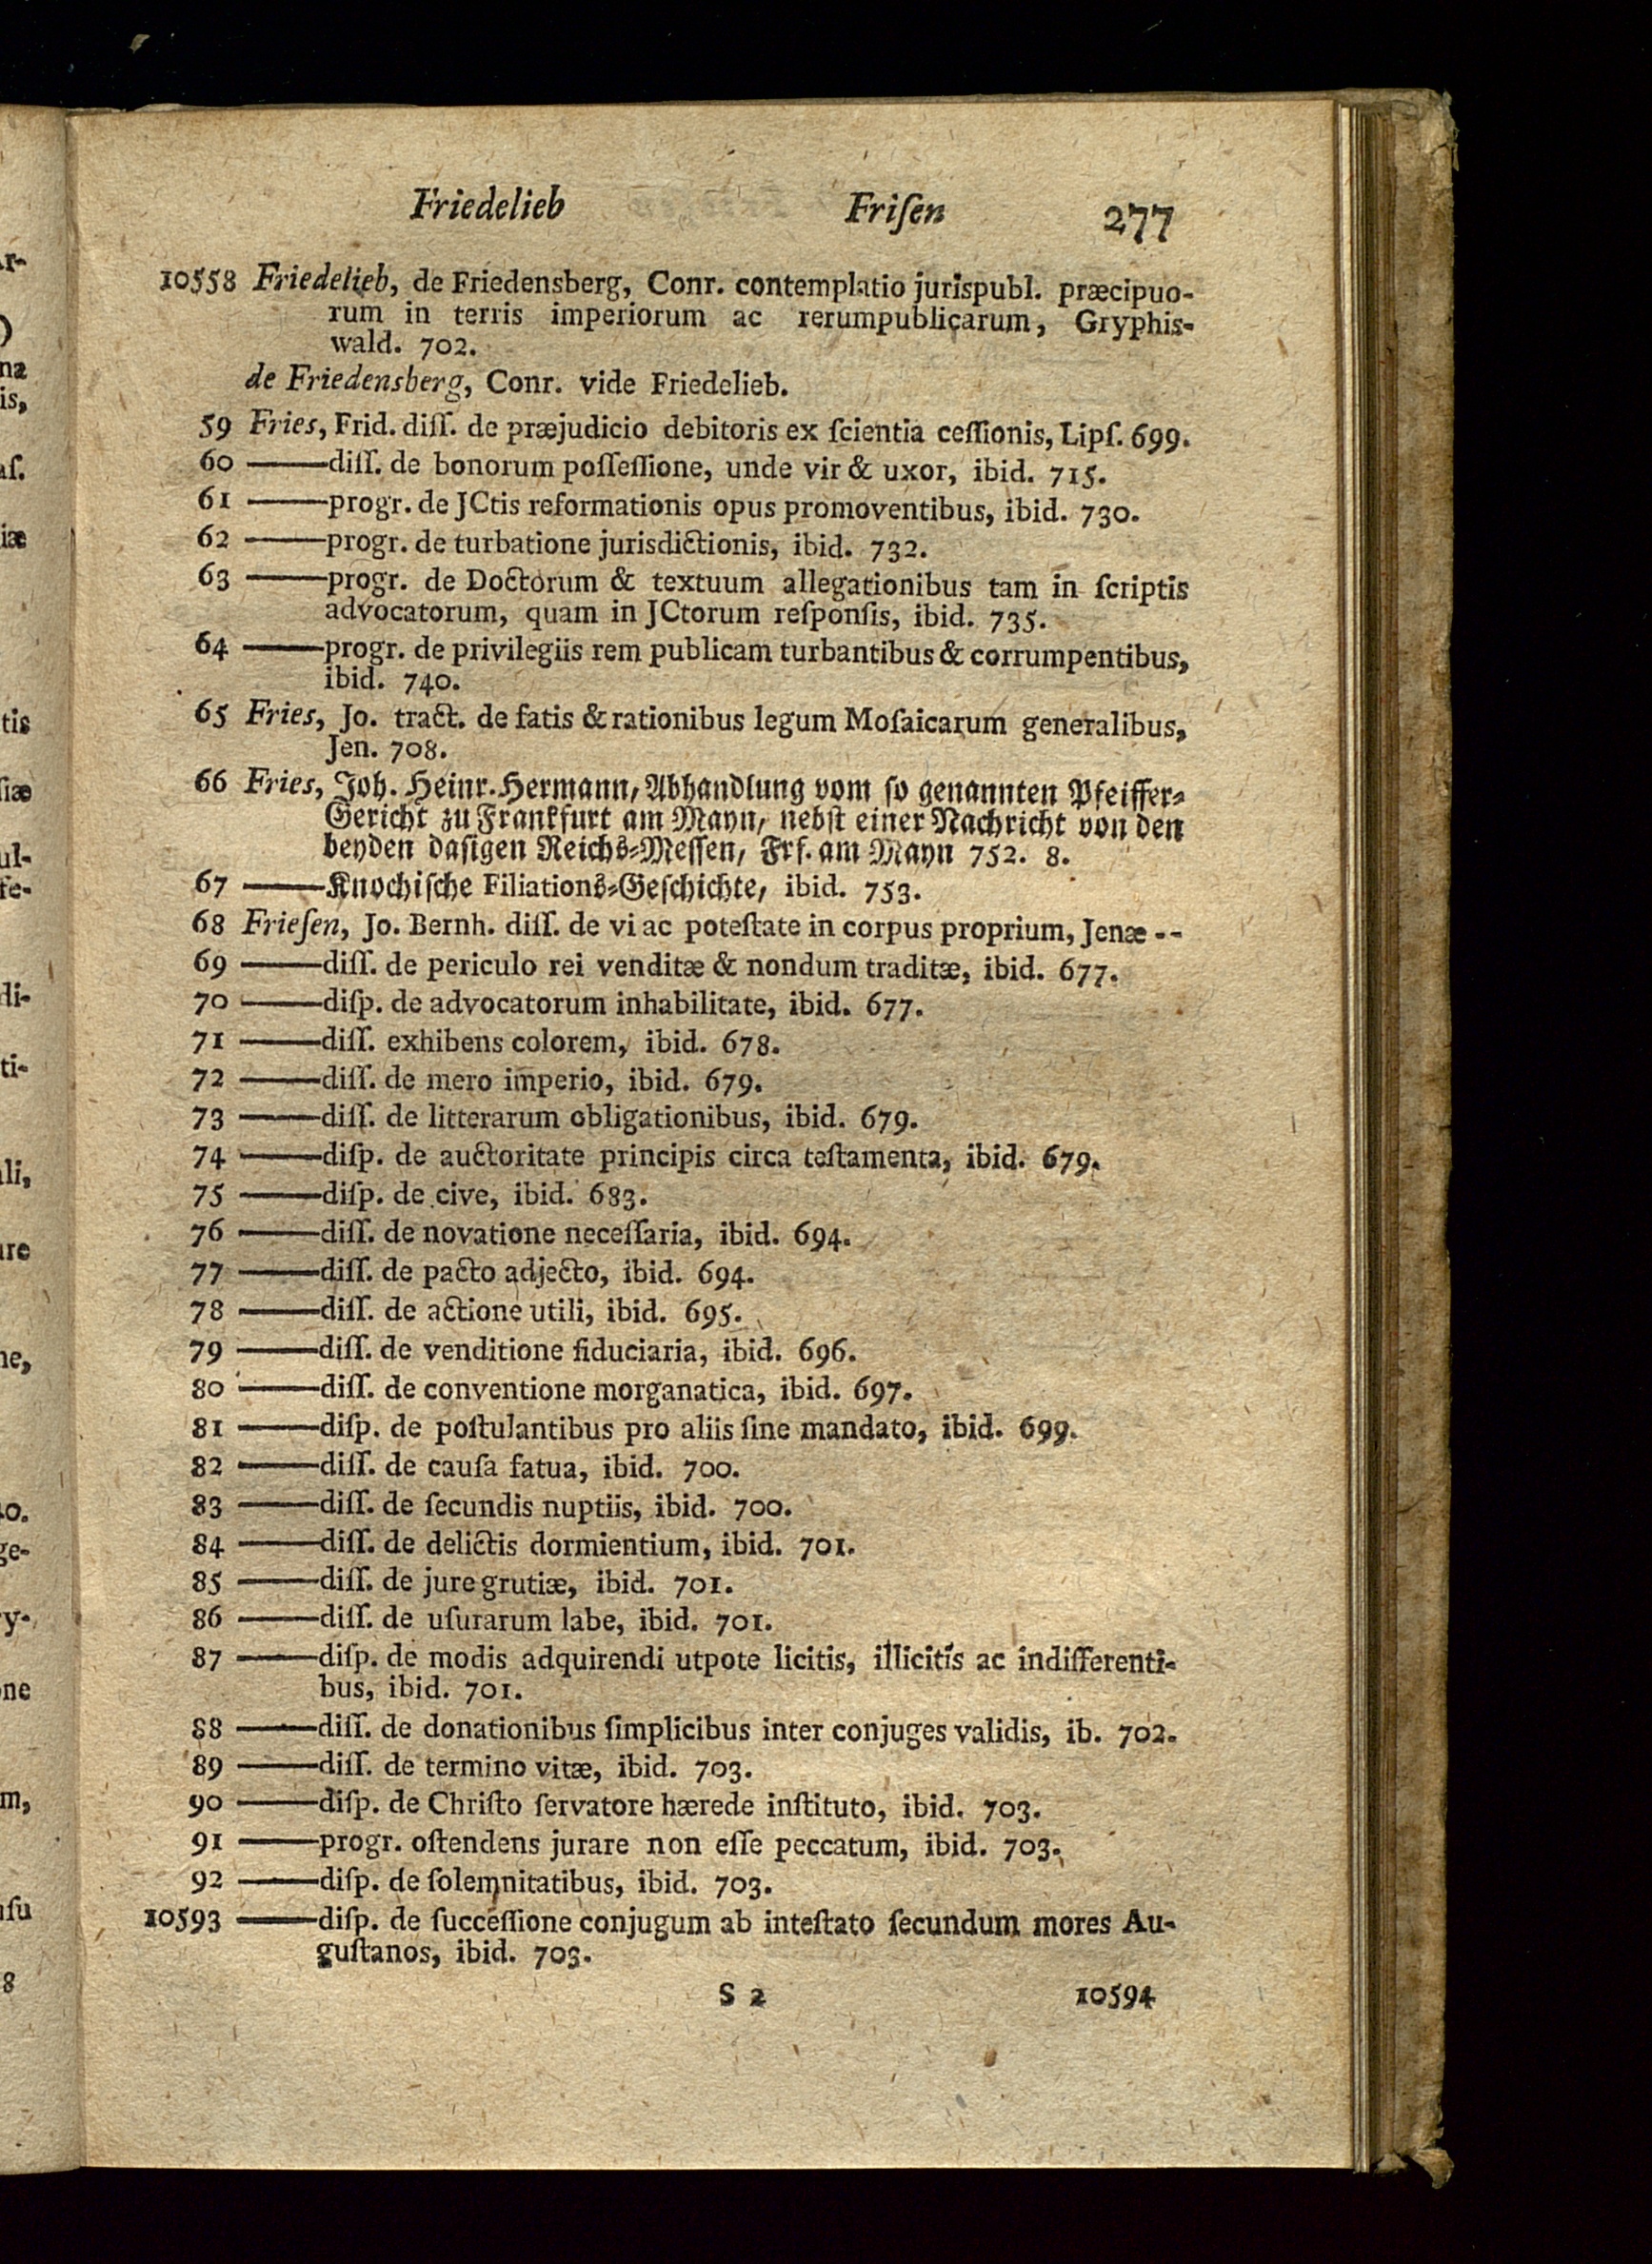 Friedelieb Friſen 277
10558 Friedelieb, de Friedensberg, Conr. contemplatio jurispubl. præcipuo-
rum in terris imperiorum ac rerumpublicarum, Gryphis-
wald. 702.
de Friedensberg, Conr. vide Friedelieb.
59 Fries, Frid. diſſ. de præjudicio debitoris ex ſcientia ceſſionis, Lipſ. 699.
60 —— diſſ. de bonorum poſſeſſione, unde vir & uxor, ibid. 715.
61 —— progr. de JCtis reformationis opus promoventibus, ibid. 730.
62 —— progr. de turbatione jurisdictionis, ibid. 732.
63 —— progr. de Doctorum & textuum allegationibus tam in ſcriptis
advocatorum, quam in JCtorum reſponſis, ibid. 735.
64 —— progr. de privilegiis rem publicam turbantibus & corrumpentibus,
ibid. 740.
65 Fries, Jo. tract. de fatis & rationibus legum Moſaicarum generalibus,
Jen. 708.
66 Fries, Joh. Heinr. Hermann, Abhandlung vom ſo genannten Pfeiffer-
Gericht zu Frankfurt am Mayn, nebſt einer Nachricht von den
beyden daſigen Reichs-Meſſen, Frf. am Mayn 752. 8.
67 —— Knochiſche Filiations-Geſchichte, ibid. 753.
68 Frieſen, Jo. Bernh. diſſ. de vi ac poteſtate in corpus proprium, Jenæ --
69 —— diſſ. de periculo rei venditæ & nondum traditæ, ibid. 677.
70 —— diſp. de advocatorum inhabilitate, ibid. 677.
71 —— diſſ. exhibens colorem, ibid. 678.
72 —— diſſ. de mero imperio, ibid. 679.
73 —— diſſ. de litterarum obligationibus, ibid. 679.
74 —— diſp. de auctoritate principis circa teſtamenta, ibid. 679.
75 —— diſp. de cive, ibid. 683.
76 —— diſſ. de novatione neceſſaria, ibid. 694.
77 —— diſſ. de pacto adjecto, ibid. 694.
78 —— diſſ. de actione utili, ibid. 695.
79 —— diſſ. de venditione fiduciaria, ibid. 696.
80 —— diſſ. de conventione morganatica, ibid. 697.
81 —— diſp. de poſtulantibus pro aliis ſine mandato, ibid. 699.
82 —— diſſ. de cauſa fatua, ibid. 700.
83 —— diſſ. de ſecundis nuptiis, ibid. 700.
84 —— diſſ. de delictis dormientium, ibid. 701.
85 —— diſſ. de jure grutiæ, ibid. 701.
86 —— diſſ. de uſurarum labe, ibid. 701.
87 —— diſp. de modis adquirendi utpote licitis, illicitis ac indifferenti-
bus, ibid. 701.
88 —— diſſ. de donationibus ſimplicibus inter conjuges validis, ib. 702.
89 —— diſſ. de termino vitæ, ibid. 703.
90 —— diſp. de Chriſto ſervatore hærede inſtituto, ibid. 703.
91 —— progr. oſtendens jurare non eſſe peccatum, ibid. 703.
92 —— diſp. de ſolemnitatibus, ibid. 703.
10593 —— diſp. de ſucceſſione conjugum ab inteſtato ſecundum mores Au-
guſtanos, ibid. 703.
S 2 10594